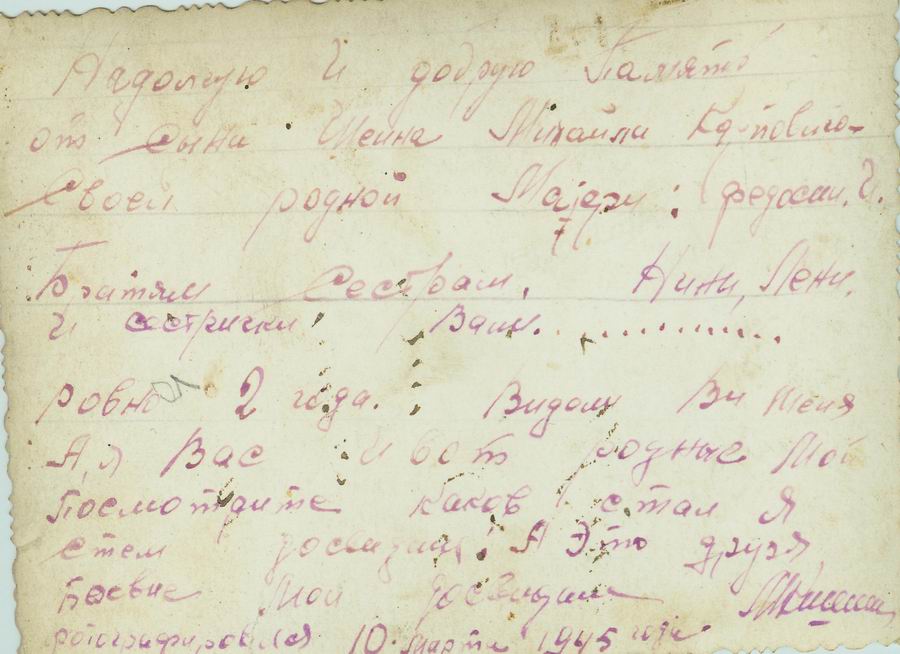 Надолгую И добрую Память
от Сына Шеина Михаила Карповича
Своей родной Матери: Федосии. И.
Братям Сестрам, Нини, Лени,
И сестрички Вали. ............
ровно 2 года. Видали Ви Меня
А, я Вас И вот родные Мои
Посмотрите каков стал я
стем досвидания: А Это друзя
Боевые Мои досвидания
фотографировался 10. марта 1945 года